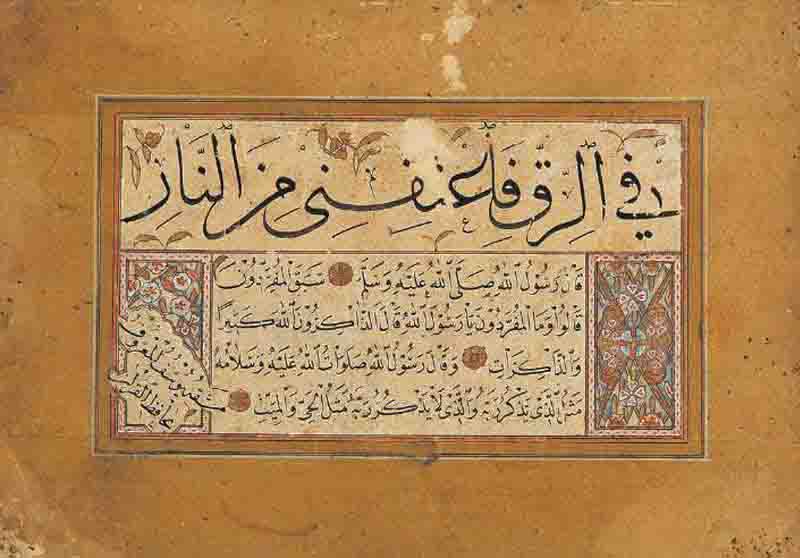 في الرق فاعتقني من النار
قال رسول الله صلى الله عليه وسلم سبق المفردون
قالوا وما المفردون يا رسول الله قال الذاكرون الله كثيرا
والذاكرات وقال رسول الله صلوات الله عليه وسلامه
مثل الذي يذكر ربه والذي لا يذكر ربه مثل الحي والميت
المعروف
بحافظ القرآن